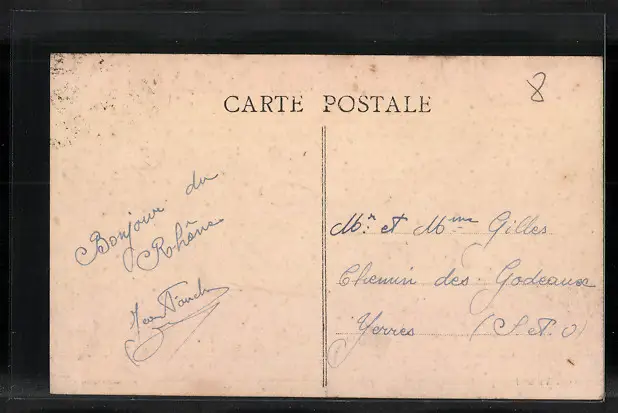 CARTE POSTALE
8
Bonjour du
Rhône
Mr. et Mme Gilles
Chemin des Godeaux
Yerres (S. et. O)